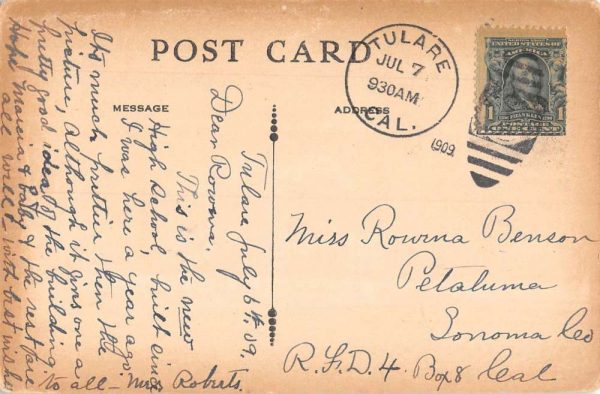 POST CARD
MESSAGE
ADDRESS
TULARE
JUL 7
930AM
CAL.
1909
UNITED STATES OF
AMERICA
1
1
FRANKLIN
POSTAGE
ONE CENT
Tulare July 6th, 09.
Dear Rowena,
This is the new
High School, built since
I was here a year ago.
Its much prettier then the
picture, Although it gives one a
pretty good idea of the building.
Hope Maicia & baby & the rest are
all well, with best wishes
to all - Mrs Roberts.
Miss Rowena Benson
Petaluma
Sonoma Co
R.F.D. 4 Box 8 Cal